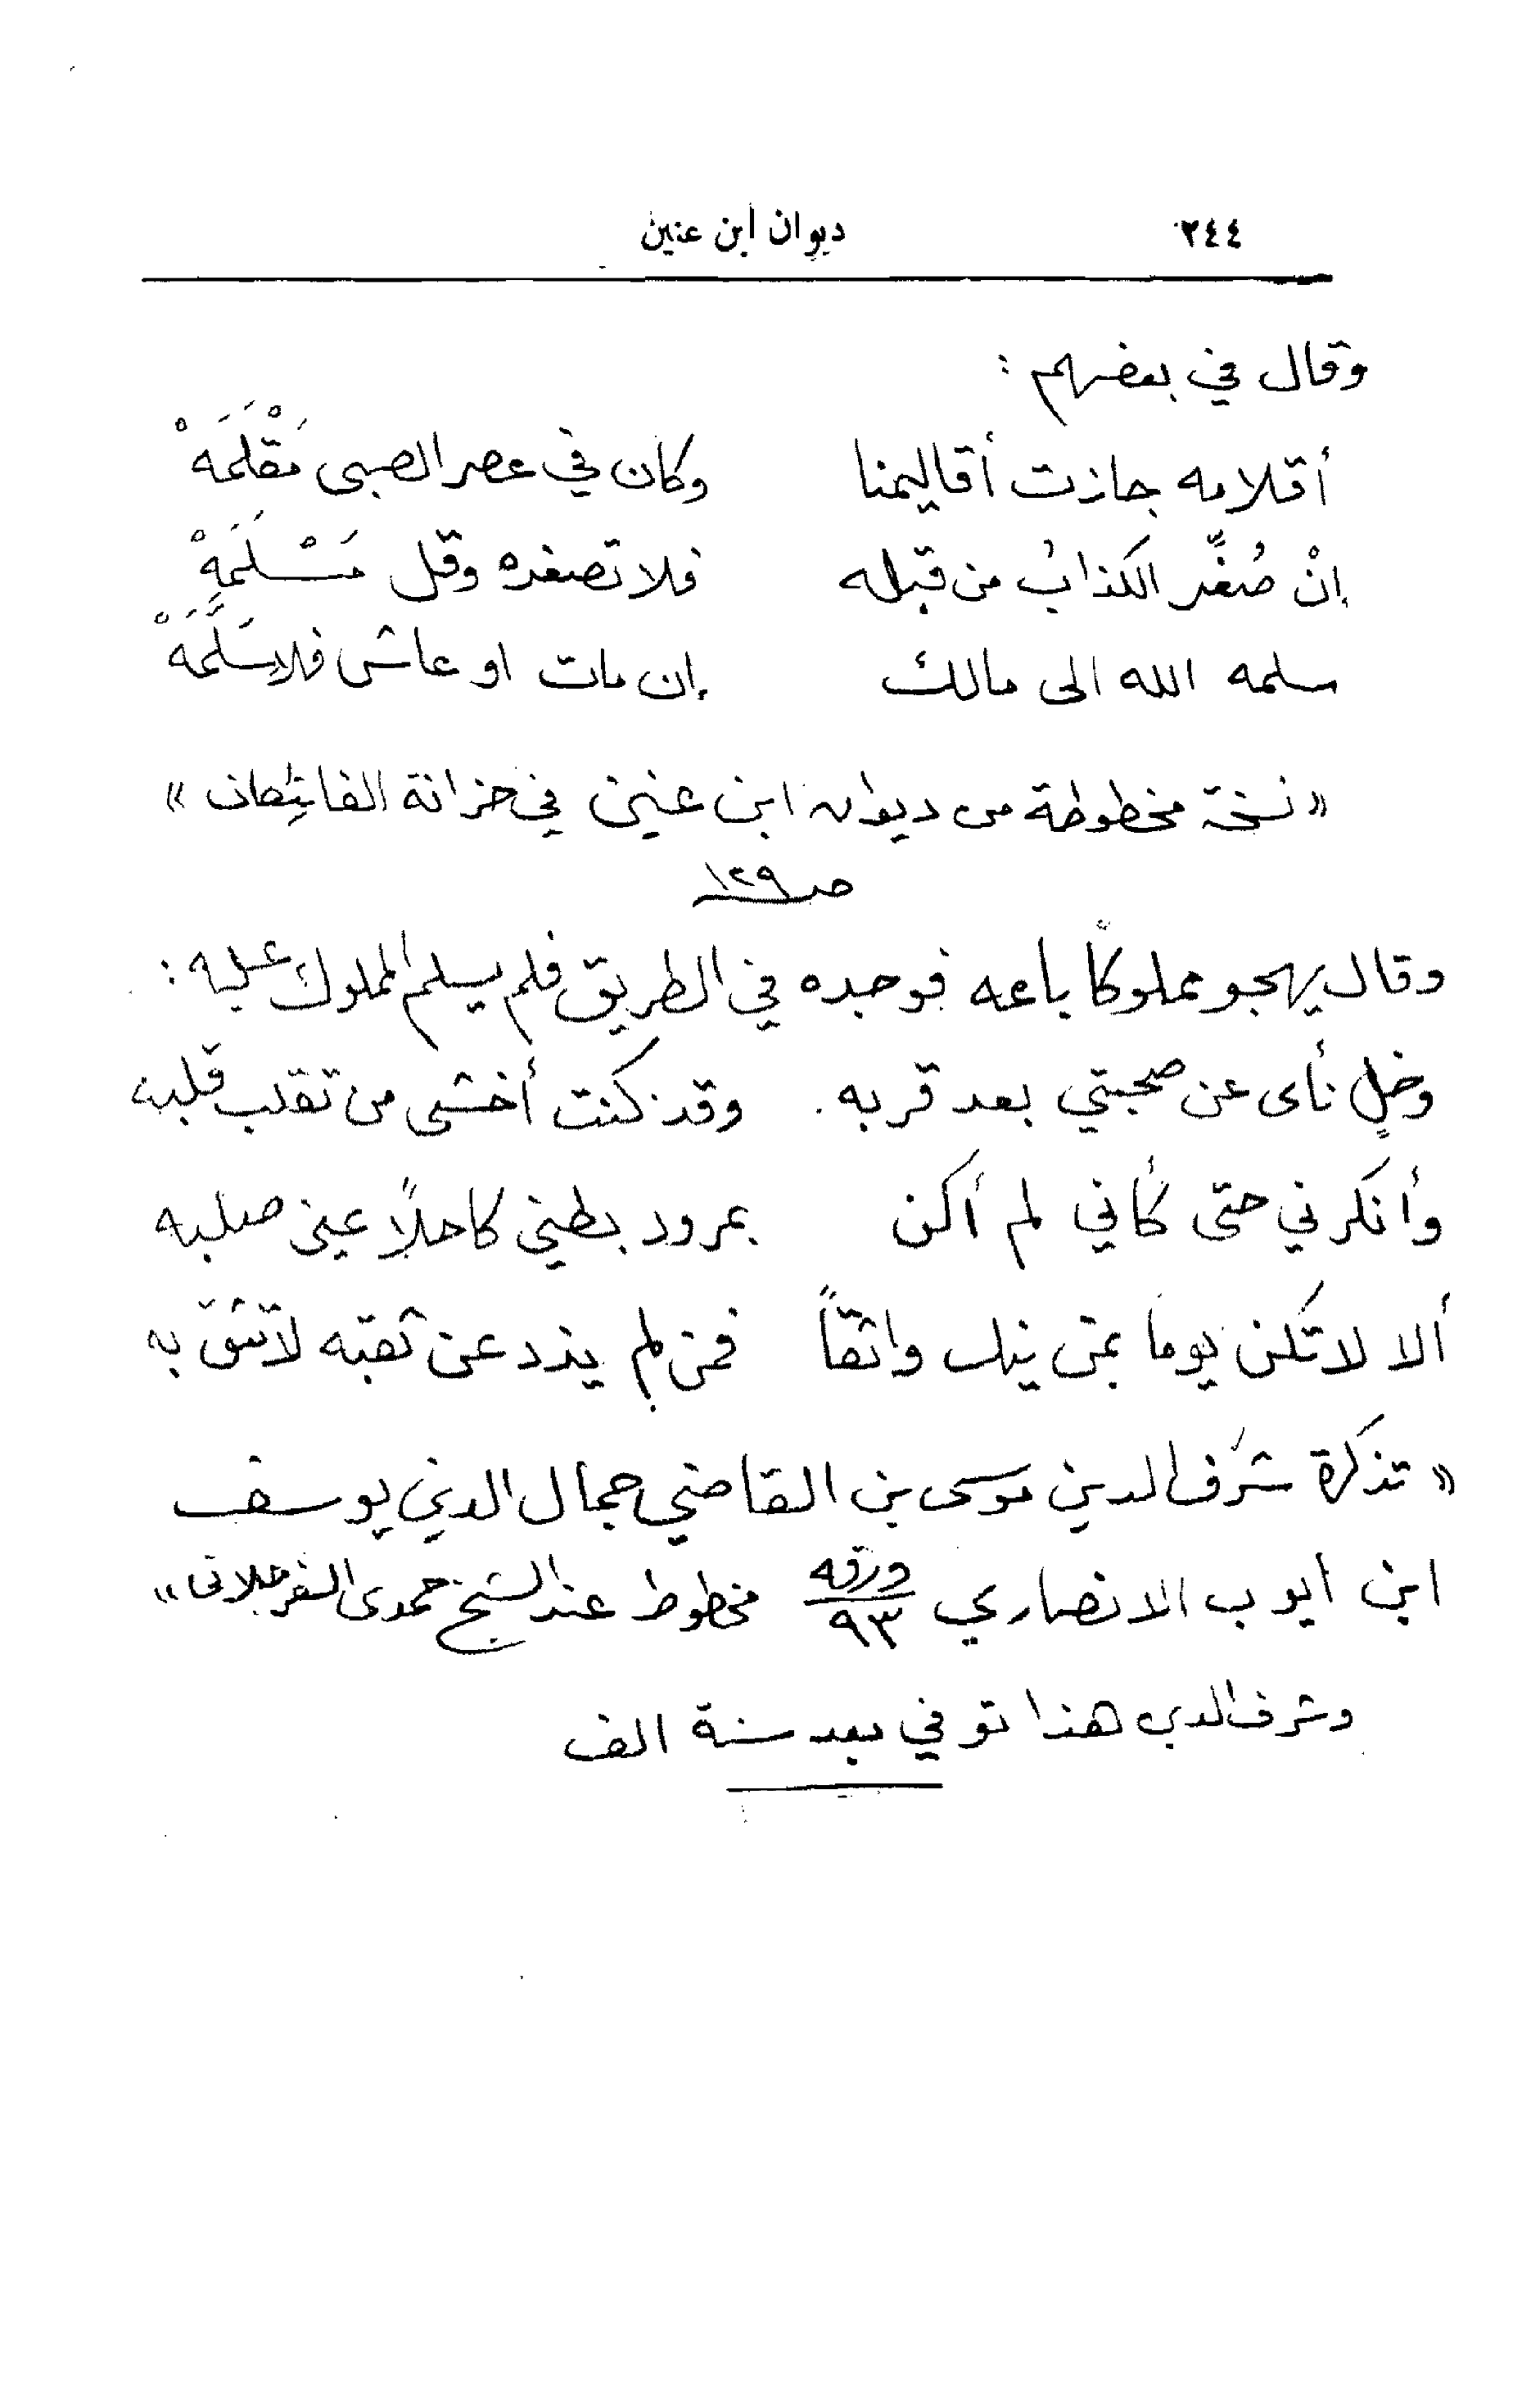 ٢٤٤ ديوان ابن عنين
وقال في بعضهم :
أقلامه جازت أقاليمنا وكان في عصر الصبى مَقْلَمَهْ
إنْ صُغِّر الكذابُ من قبله فلا تصغره وقل مَسْلَمَهْ
سلمه الله الى مالك إن مات او عاش فلا سَلَّمَهْ
« نسخة مخطوطة من ديوان ابن عنين في خزانة الفاتيكان »
ص ١٢٩
وقال يهجو مملوكاً باعه فوجده في الطريق فلم يسلم المملوك عليه :
وخلٍ نأى عن صحبتي بعد قربه وقد كنت أخشى من تقلب قلبه
وأنكرني حتى كأني لم أكن بمرود بطني كاحلاً عين صلبه
ألا لا تكن يوما بمن ينك واثقاً فمن لم يذد عن ثقبه لا تثق به
« تذكرة شرف الدين موسى بن القاضي جمال الدين يوسف
ابن أيوب الانصاري ورقه ٩٣ مخطوط عند الشيخ حمدي السفرجلاني »
وشرف الدين هذا توفي بعد سنة الف